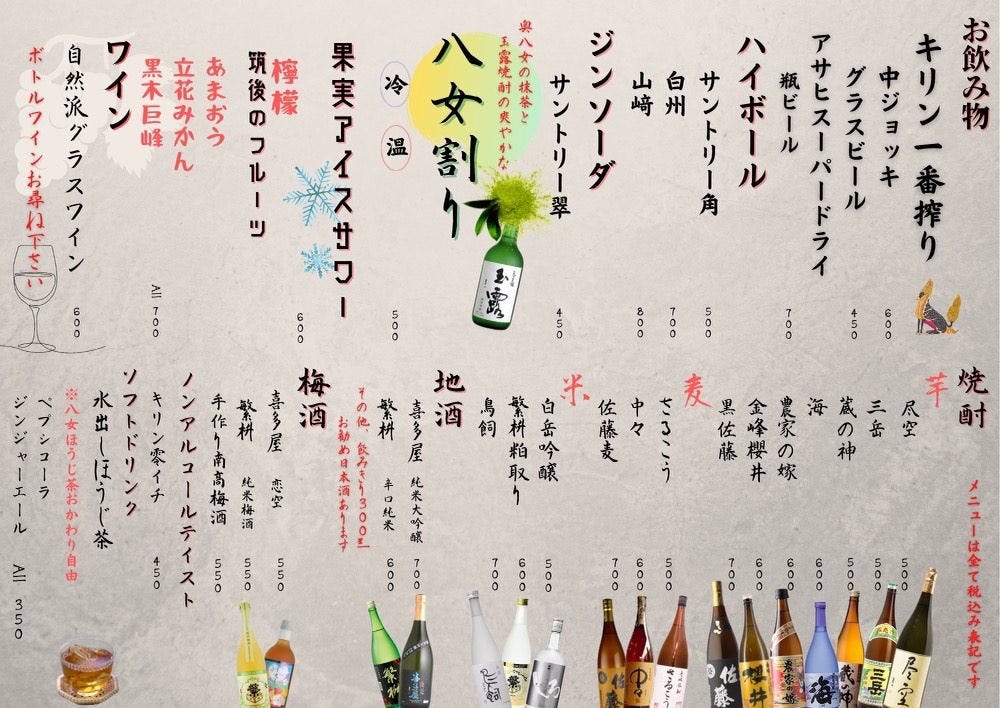 お飲み物
キリン一番搾り
中ジョッキ 600
グラスビール 450
瓶ビール 700
アサヒスーパードライ
ハイボール
サントリー角 500
白州 700
山﨑 800
ジンソーダ
サントリー翠 450
奥八女の抹茶と
玉露焼酎の爽やかな
八女割り
冷 温 500
玉露
果実アイスサワー
檸檬 600
筑後のフルーツ
あまおう
立花みかん
黒木巨峰
All 700
ワイン
自然派グラスワイン 600
ボトルワインお尋ね下さい
メニューは全て税込み表記です
焼酎
芋
尽空 500
三岳 500
蔵の神 500
海 600
農家の嫁 600
金峰櫻井 600
黒佐藤 700
麦
さるこう 500
中々 600
佐藤麦 700
米
白岳吟醸 500
繁桝粕取り 600
鳥飼 700
地酒
喜多屋 純米大吟醸 700
繁桝 辛口純米 600
その他、飲みきり300ml
お勧め日本酒あります
梅酒
喜多屋 恋空 550
繁桝 純米梅酒 550
手作り南高梅酒 550
ノンアルコールテイスト
キリン零イチ 450
ソフトドリンク
水出しほうじ茶
※八女ほうじ茶おかわり自由
ペプシコーラ
ジンジャーエール
All 350